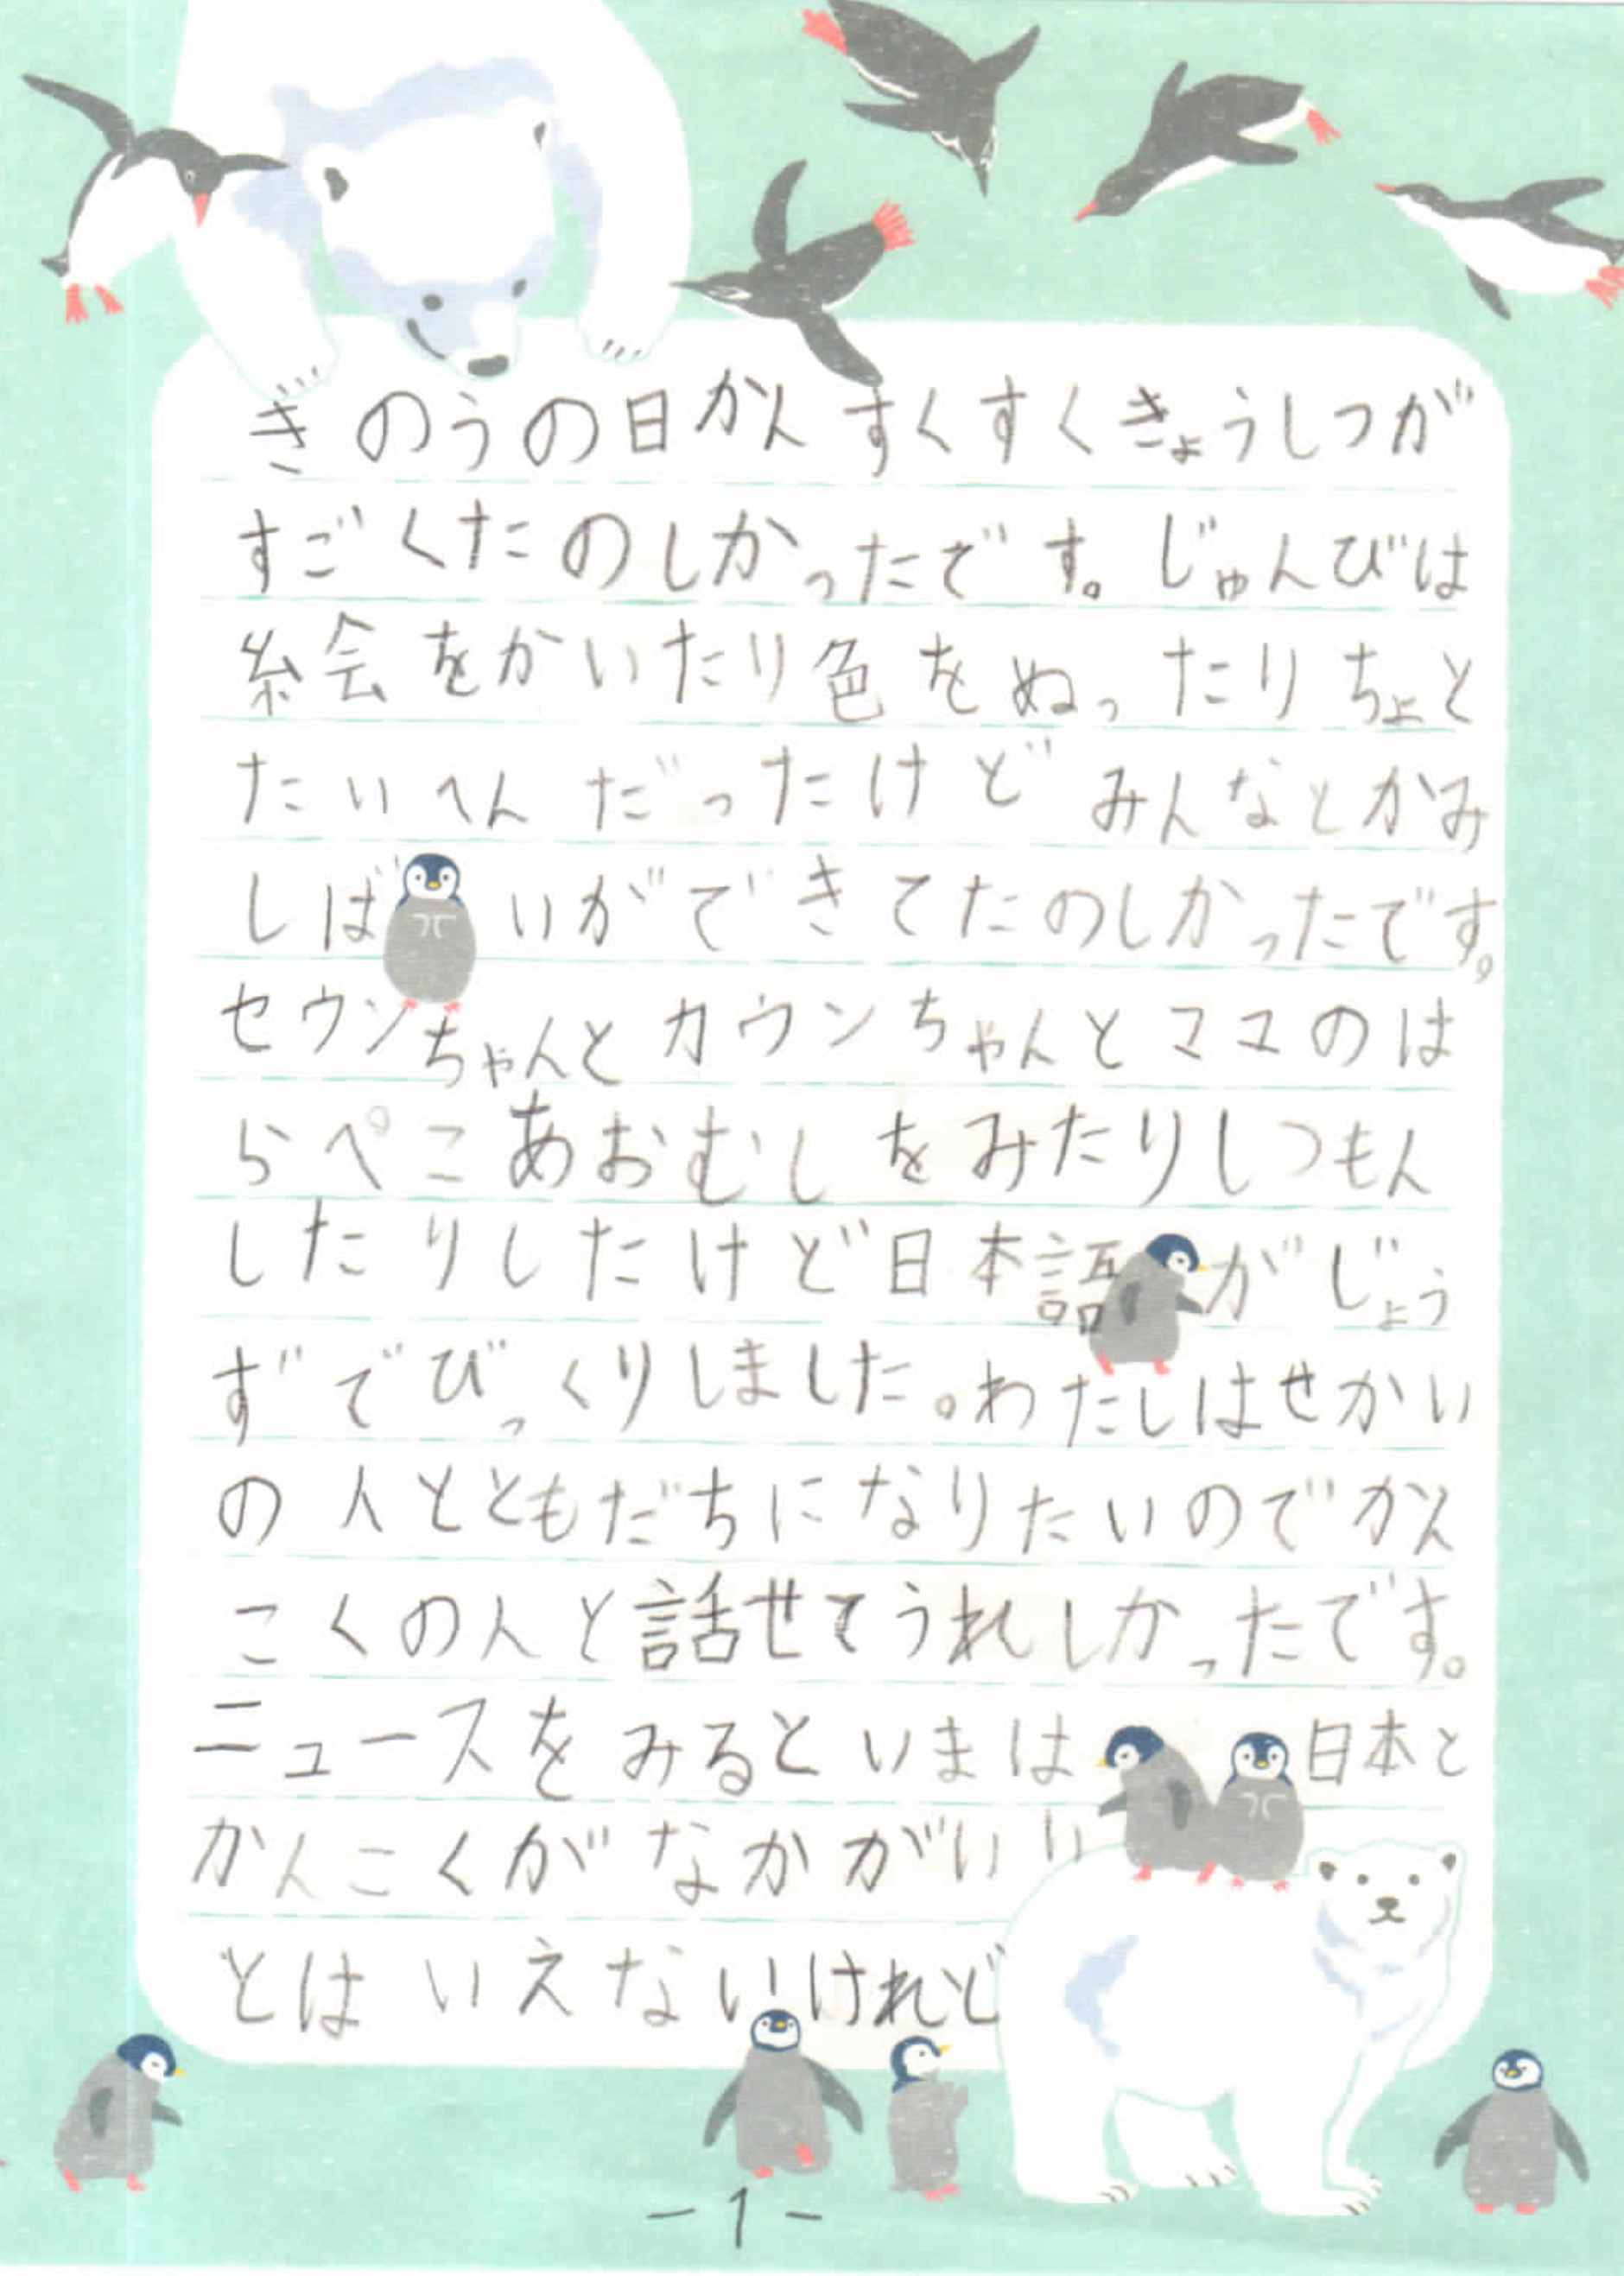 きのうの日かんすくすくきょうしつが
すごくたのしかったです。じゅんびは
絵をかいたり色をぬったりちょと
たいへんだったけどみんなとかみ
しばいができてたのしかったです。
セウンちゃんとカウンちゃんとママのは
らぺこあおむしをみたりしつもん
したりしたけど日本語がじょう
ずでびっくりしました。わたしはせかい
の人とともだちになりたいのでかん
こくの人と話せてうれしかったです。
ニュースをみるといまは日本と
かんこくがなかがいい
とはいえないけれど
-1-